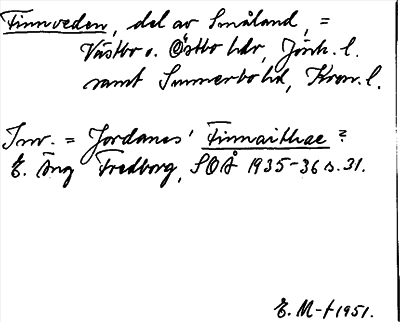 Finnveden, del av Småland, =
Västbo o. Östbo hdr, Jönk. l.
samt Sunnerbo hd, Kron. l.
Inv. = Jordanes' Finnaithae?
E. Äng Fredborg, SOÅ 1935-36 s. 31.
E. M-t 1951.